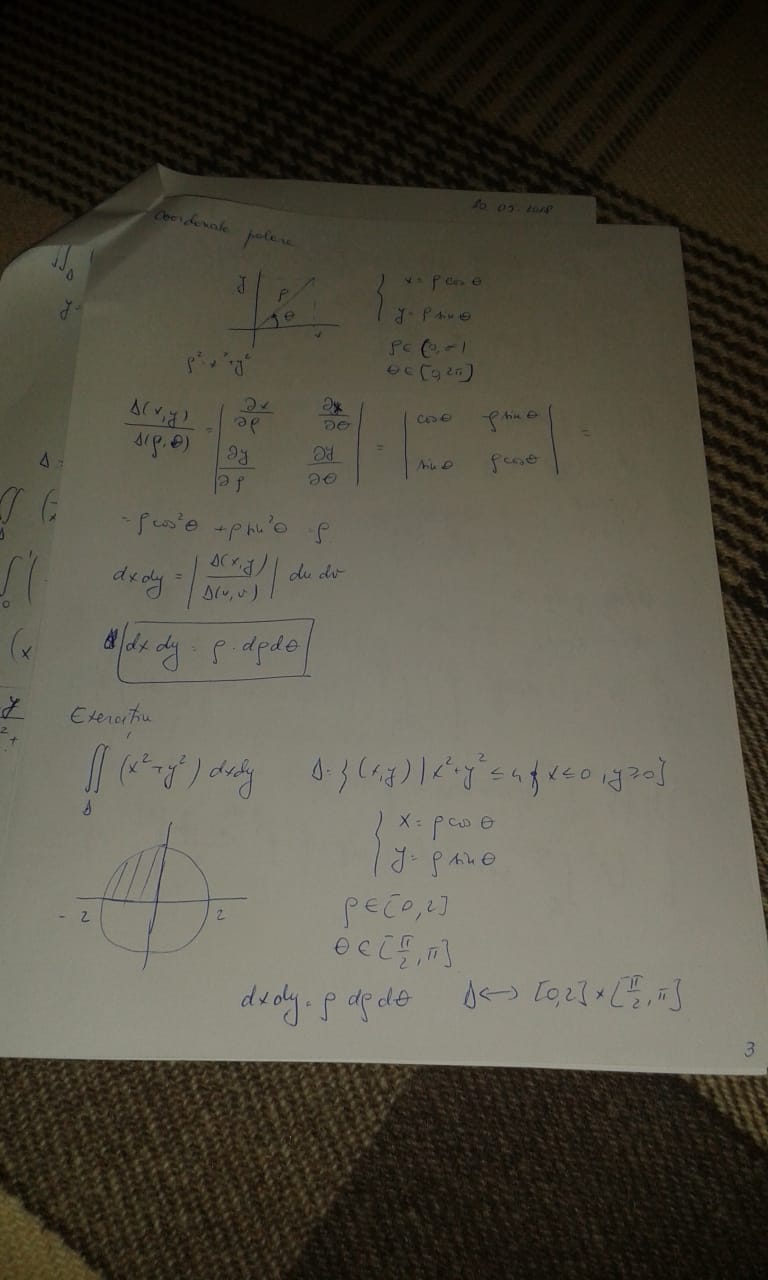 20.05.2018
Coordonate polare
y ρ θ x
{ x = ρ cos θ
y = ρ sin θ
ρ² = x² + y²
θ ∈ [0, 2π]
Δ(x,y) / Δ(ρ,θ) = | ∂x/∂ρ ∂x/∂θ | = | cos θ ρ sin θ | =
| ∂y/∂ρ ∂y/∂θ | | sin θ ρ cos θ |
= ρ cos² θ + ρ sin² θ = ρ
dx dy = | Δ(x,y) / Δ(u,v) | du dv
dx dy = ρ · dρ dθ
Exercițiu
∬_Δ (x² + y²) dx dy Δ = { (x,y) | x² + y² ≤ 4, x ≤ 0, y ≥ 0 }
{ x = ρ cos θ
y = ρ sin θ
-2 2
ρ ∈ [0, 2]
θ ∈ [π/2, π]
dx dy = ρ dρ dθ Δ ↔ [0, 2] × [π/2, π]
3